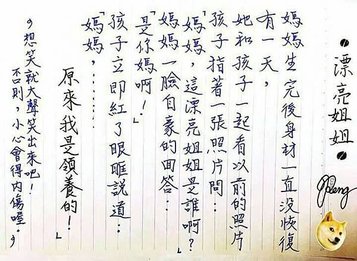 •漂亮姐姐•
媽媽生完後身材一直沒恢復
有一天，
她和孩子一起看以前的照片
孩子指著一張照片問：
「媽媽，這漂亮姐姐是誰啊？」
媽媽一臉自豪的回答：
「是你媽啊！」
孩子立即紅了眼眶說道：
「媽媽，……
原來我是領養的！」
，想笑就大聲笑出來吧！
否則，小心會得內傷喔。，